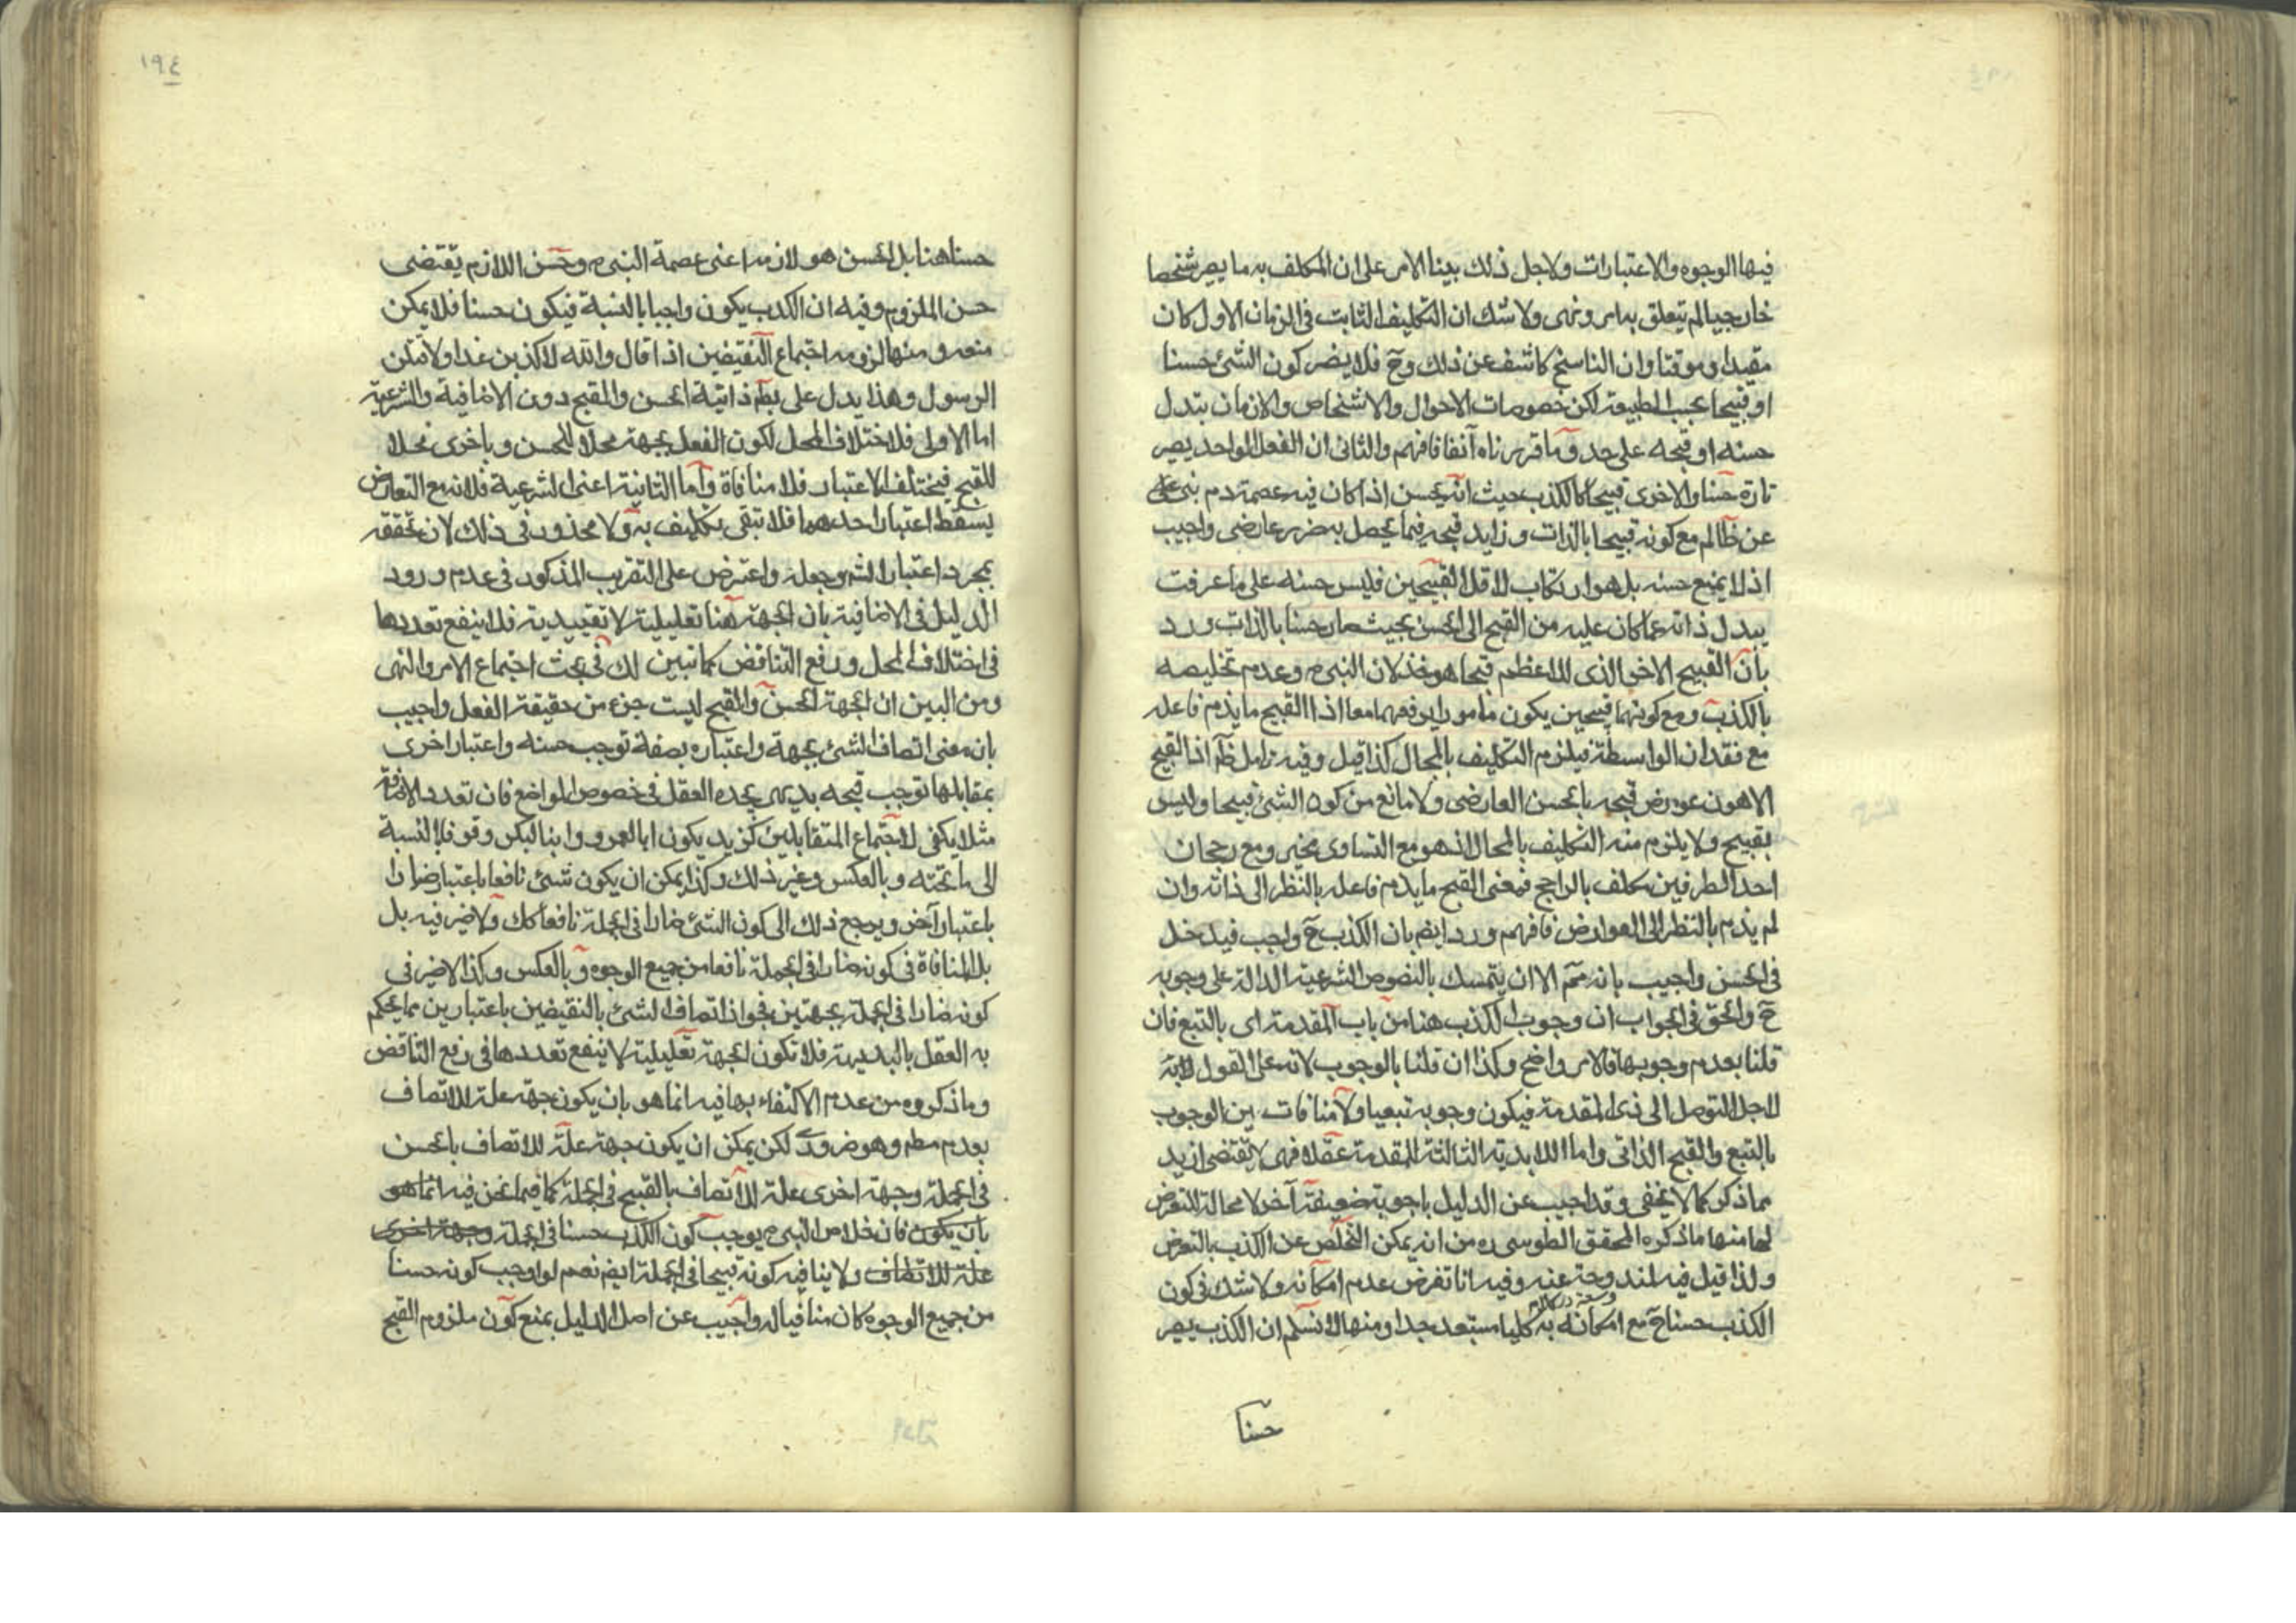 فيها الوجوه والاعتبارات ولاجل ذلك بينا الامر على ان المكلف به ما يصر شخصا
خارجيا لم يتعلق به امر ونهى ولا شك ان التكليف الثابت فى الزمان الاول كان
مقيدا وموقتا وان الناسخ كاشف عن ذلك وح فلا يضر كون الشئ حسنا
او قبيحا بحسب الطبيعة لكن خصوصات الاحوال والاشخاص والازمان يتدل
حسنه او قبحه على حد وما قررناه آنفا فافهم والثانى ان الفعل الواحد يصر
تارة حسنا والاخرى قبيحا كالكذب حيث انه يحسن اذا كان فيه عصمة دم نبى على
عن ظالم مع كونه قبيحا بالذات وزايد قبحه فيما يحصل به ضرر عارضى واجيب
اذ لا يمنع حسنه بل هو ارتكاب لاقل القبيحين فليس حسنه على ما عرفت
يبدل ذاته عما كان عليه من القبح الى الحسن بحيث صار حسنا بالذات ورد
بان القبيح الاخر الذى للاعظم قبحا هو خذلان النبى م وعدم تخليصه
بالكذب ومع كونهما قبيحين يكون مامورا برفعهما معا اذا القبيح ما يذم فاعله
مع فقدان الواسطة فيلزم التكليف بالمحال كذا قيل وفيه تامل ظم اذ القبيح
الاهون عورض قبحه بالحسن العارضى ولا مانع من كون الشئ قبيحا وليس
بقبيح ولا يلزم منه التكليف بالمحال اذ هو مع التساوى مخير ومع رجحان
احد الطرفين مكلف بالراجح فمعنى القبح ما يذم فاعله بالنظر الى ذاته وان
لم يذم بالنظر الى العوارض فافهم ورد ايضم بان الكذب ح واجب فيدخل
فى الحسن واجيب بانه مم الا ان يتمسك بالنصوص الشرعية الدالة على وجوبه
ح والحق فى الجواب ان وجوب الكذب هنا من باب المقدمة اى بالتبع فان
قلنا بعدم وجوبها فالامر واضح وكذا ان قلنا بالوجوب لانه على القول به
لاجل التوصل الى ذى المقدمة فيكون وجوبه تبعيا ولا منافات بين الوجوب
بالتبع والقبح الذاتى واما اللابدية الثالثة للمقدمة عقلا فهى لا تقتضى ازيد
مما ذكر كما لا يخفى وقد اجيب عن الدليل باجوبة ضعيفة آخر لا محالة للتعرض
لها منها ما ذكره المحقق الطوسى ره من انه يمكن التخلص عن الكذب بالتعرض
ولذا قيل فيه لمندوحة عنه وفيه انا نفرض عدم امكانه ولا شك فى كون
الكذب حسنا ح مع امكانه به كليا مستبعد جدا ومنها لا نسلم ان الكذب يصر
حسنا
١٩٤
حسنا هنا بل الحسن هو لازمه اعنى عصمة النبى م وحسن اللازم يقتضى
حسن الملزوم وفيه ان الكذب يكون واجبا بالنسبة فيكون حسنا فلا يمكن
منعه ومنها لزومه اجتماع النقيضين اذا قال والله لاكذبن غدا ولا تمكن
الرسول وهذا يدل على بطم ذاتية الحسن والقبح دون الاضافية والشرعية
اما الاولى فلاختلاف المحل لكون الفعل بجهة محلا للحسن وباخرى محلا
للقبح فيختلف الاعتبار فلا منافاة واما الثانية اعنى الشرعية فلانه مع التعارض
يسقط اعتبار احدهما فلا تبقى تكليف به ولا محذور فى ذلك لان تحققه
بمجرد اعتبار الشم وجعله واعترض على التقريب المذكور فى عدم ورود
الدليل فى الاضافية بان الجهة هنا تعليلية لا تقييدية فلا ينفع تعددها
فى اختلاف المحل ورفع التناقض كما تبين لك فى بحث اجتماع الامر والنهى
ومن البين ان الجهة الحسن والقبح ليست جزء من حقيقة الفعل واجيب
بان معنى اتصاف الشئ بجهة واعتباره بصفة توجب حسنه واعتبار اخرى
بمقابلها توجب قبحه بديهى يجده العقل فى خصوص المواضع فان تعدد الاضافة
مثلا يكفى لاجتماع المتقابلين كزيد يكون ابا لعمرو وابنا لبكر وفوقا بالنسبة
الى ما تحته وبالعكس وغير ذلك وكذا يمكن ان يكون شئ نافعا باعتبار ضارا
باعتبار آخر ويرجع ذلك الى كون الشئ ضارا فى الجملة نافعا كك ولا ضير فيه بل
بل المنافاة فى كونه ضارا فى الجملة نافعا من جميع الوجوه وبالعكس وكذا لا ضير فى
كونه ضارا فى الجملة بجهتين فجواز اتصاف الشئ بالنقيضين باعتبارين مما يحكم
به العقل بالبديهة فلا تكون الجهة تعليلية لا ينفع تعددها فى رفع التناقض
وما ذكروه من عدم الاكتفاء بها فيه انما هو بان يكون جهة علة للاتصاف
بعدم مطم وهو ضرورى لكن يمكن ان يكون جهة علة للاتصاف بالحسن
فى الجملة وجهة اخرى علة للاتصاف بالقبيح فى الجملة كما فيما نحن فيه انما هو
بان يكون فان خلاص النبى م يوجب كون الكذب حسنا فى الجملة وجهة اخرى
علة للاتصاف ولا ينافيه كونه قبيحا فى الجملة ايضم نعم لو اوجب كونه حسنا
من جميع الوجوه كان منافيا له واجيب عن اصل الدليل بمنع كون ملزوم القبح